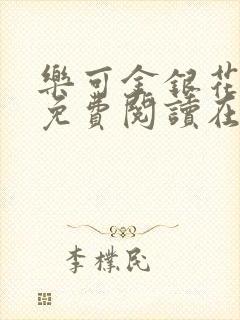 樂可金銀花
免費閱讀在
李樸民